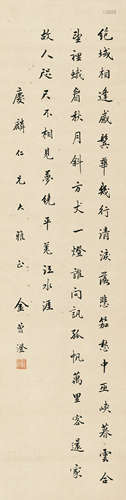 絶域相逢感鬢華幾行清淚落悲笳愁中巫峽暮雲合
望裡蛾眉秋月斜犬一燈誰問訊孤帆萬里客還家
故人咫尺不相見夢繞平羌江水涯
慶麟仁兄大雅正 金曾澄